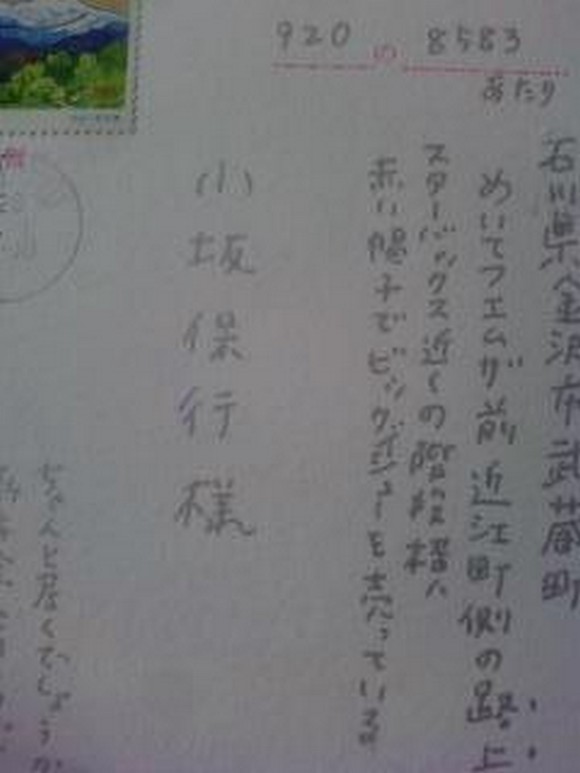 920の8583
あたり
石川県金沢市武蔵町
めいてつエムザ前 近江町側の路上
スターバックス近くの階段横に
赤い帽子でビッグイシューを売っている
小坂保行様
ちゃんと届くでしょうか